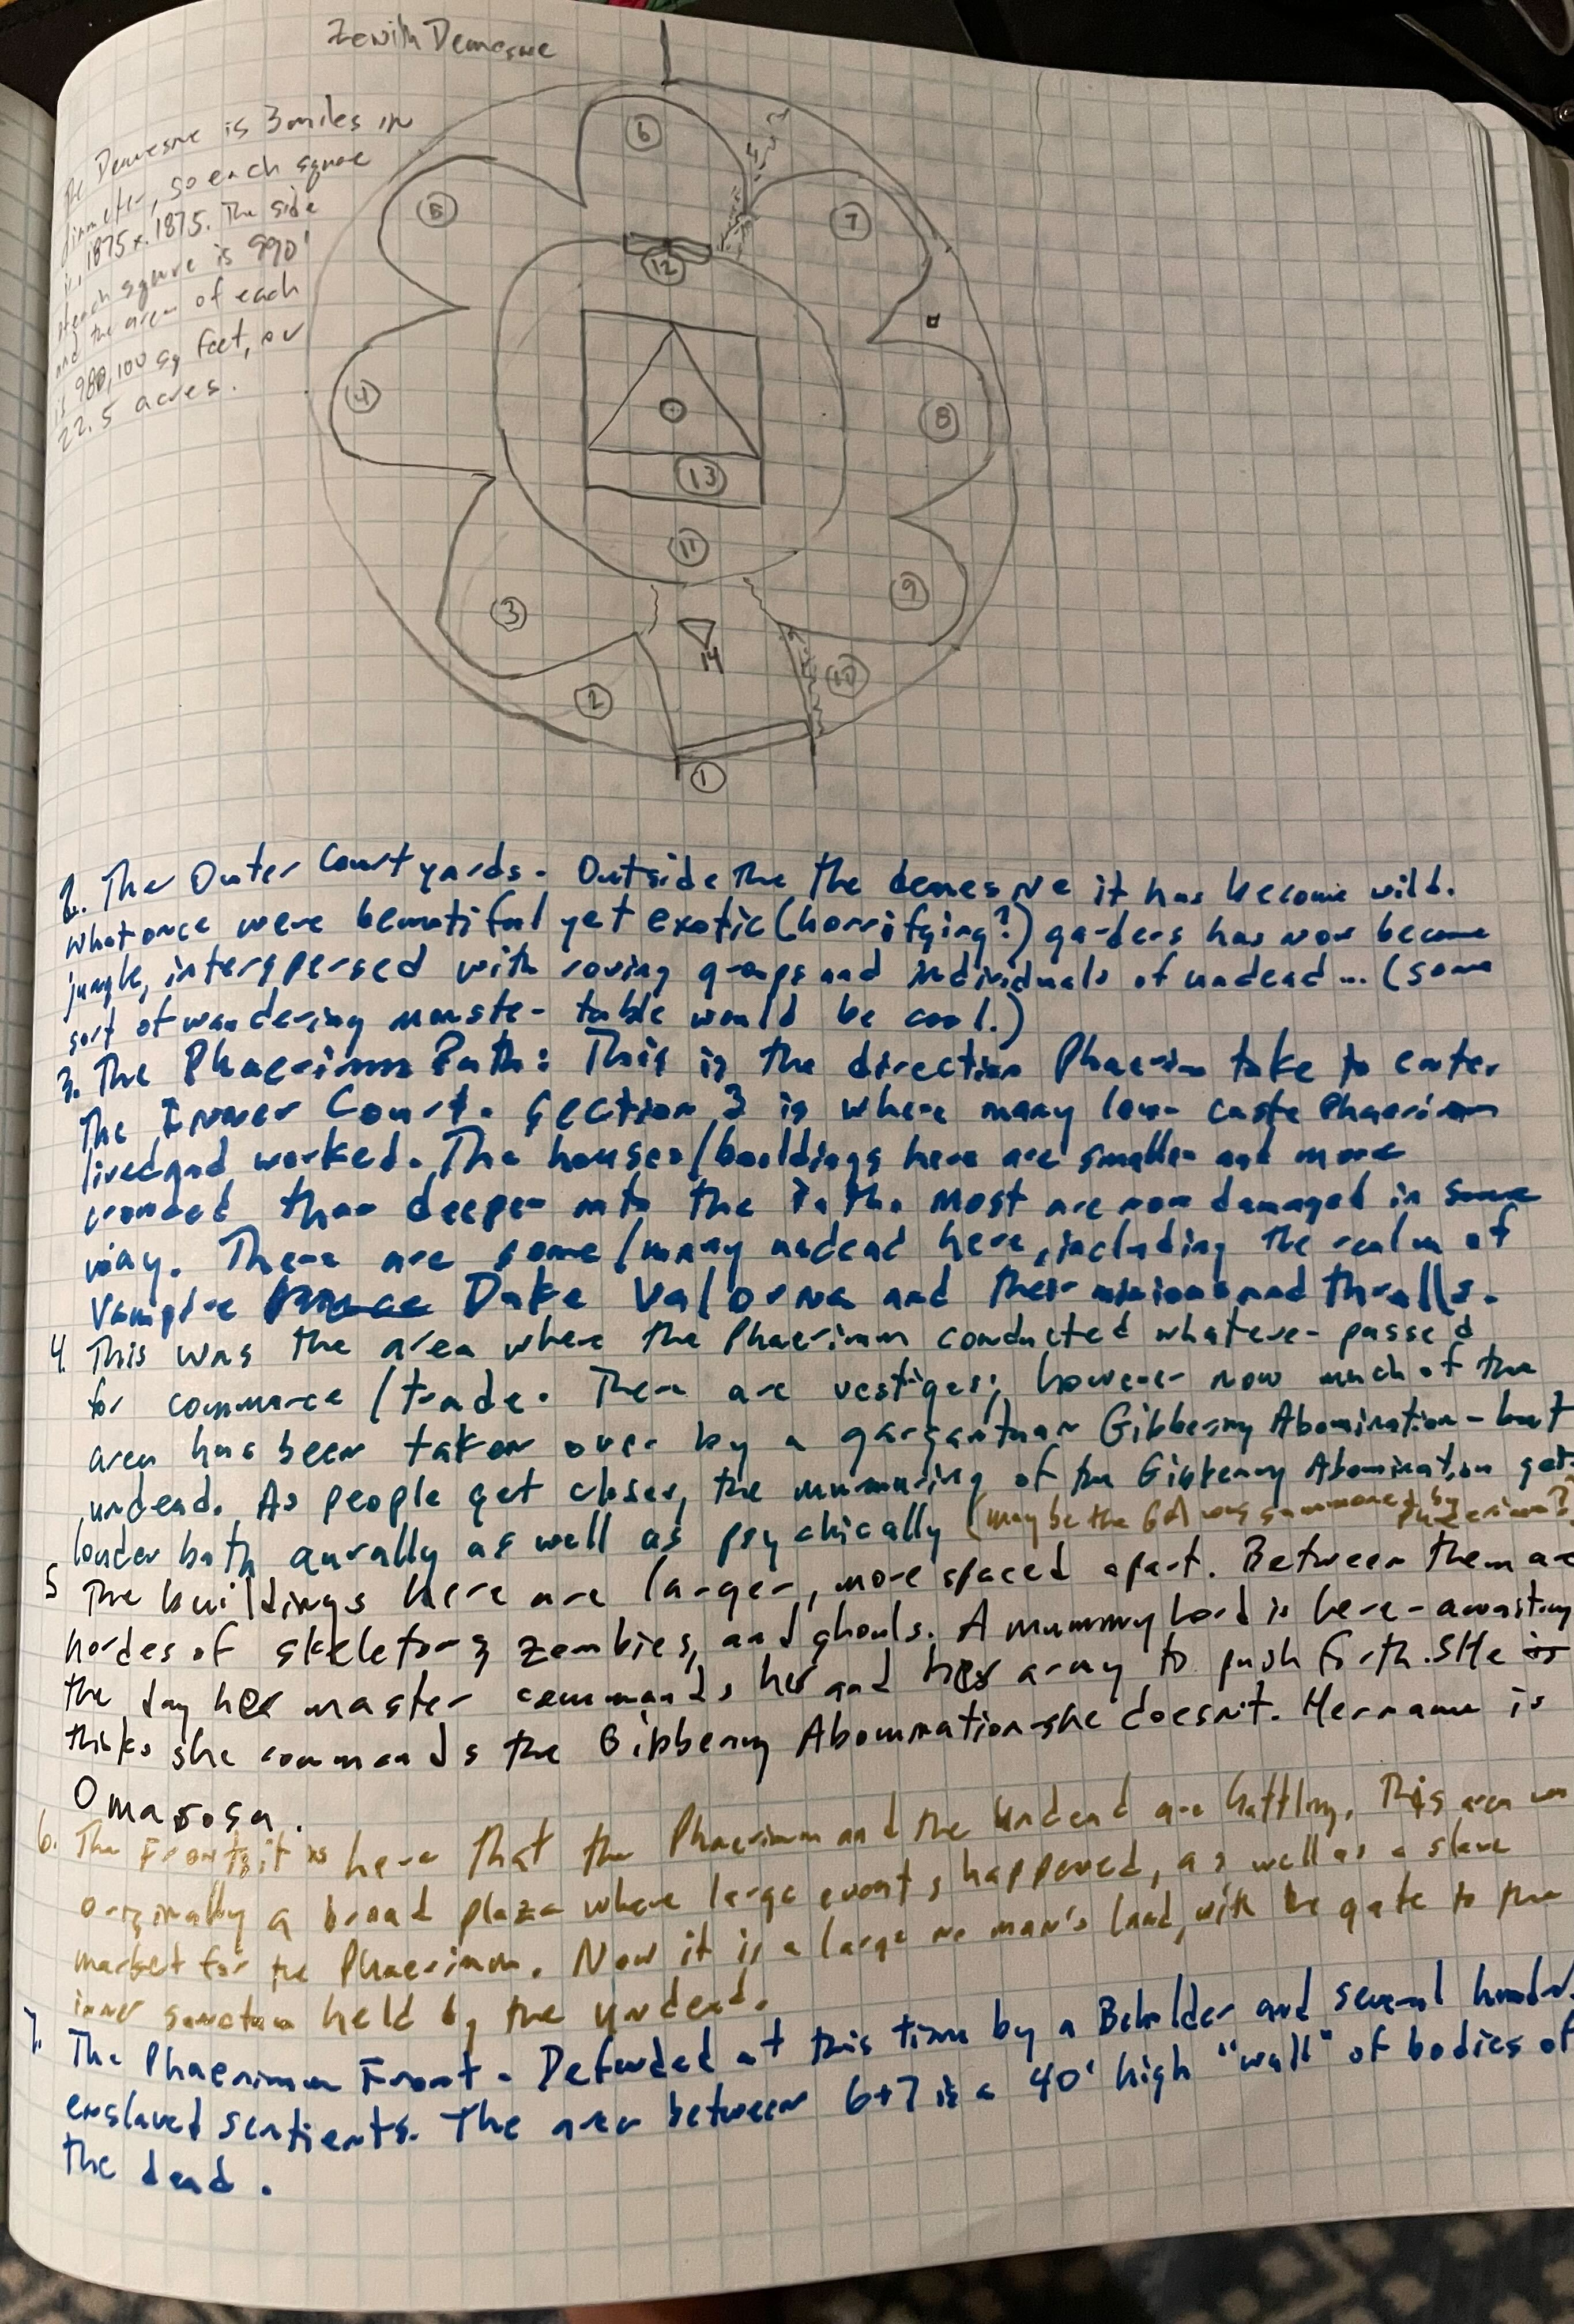 Zenith Demesne
The Demesne is 3 miles in
diameter, so each square
is .1875 x .1875. The side
of each square is 990'
and the area of each
is 980,100 sq feet, or
22.5 acres.
6
5
7
12
4
8
13
11
9
3
14
10
2
1
2. The Outer Courtyards. Outside the the demesne it has become wild.
What once were beautiful yet exotic (horrifying?) gardens has now become
jungle, interspersed with roving groups and individuals of undead... (some
sort of wandering monster table would be cool.)
3. The Phaerimm Path: This is the direction Phaerimm take to enter
the Inner Court. Section 3 is where many low caste Phaerimm
lived and worked. The houses/buildings here are smaller and more
crowded than deeper into the Path. Most are now damaged in some
way. There are some/many undead here, including the realm of
Vampire Duke Valorna and their minions and thralls.
4. This was the area where the Phaerimm conducted whatever passed
for commerce/trade. There are vestiges; however now much of the
area has been taken over by a gargantuan Gibbering Abomination - but
undead. As people get closer, the murmuring of the Gibbering Abomination gets
louder both aurally as well as psychically (maybe the GA was summoned by Phaerimm?)
5 The buildings here are larger, more spaced apart. Between them are
hordes of skeletons, zombies, and ghouls. A mummy lord is here - awaiting
the day her master commands her and her army to push forth. She is
thinks she commands the Gibbering Abomination - she doesn't. Her name is
Omarosa.
6. The Front, it is here that the Phaerimm and the Undead are battling. This area was
originally a broad plaza where large events happened, as well as a slave
market for the Phaerimm. Now it is a large no man's land, with the gate to the
inner sanctum held by the undead.
7. The Phaerimm Front - Defended at this time by a Beholder and several hundred
enslaved sentients. The area between 6+7 is a 40' high "wall" of bodies of
the dead.